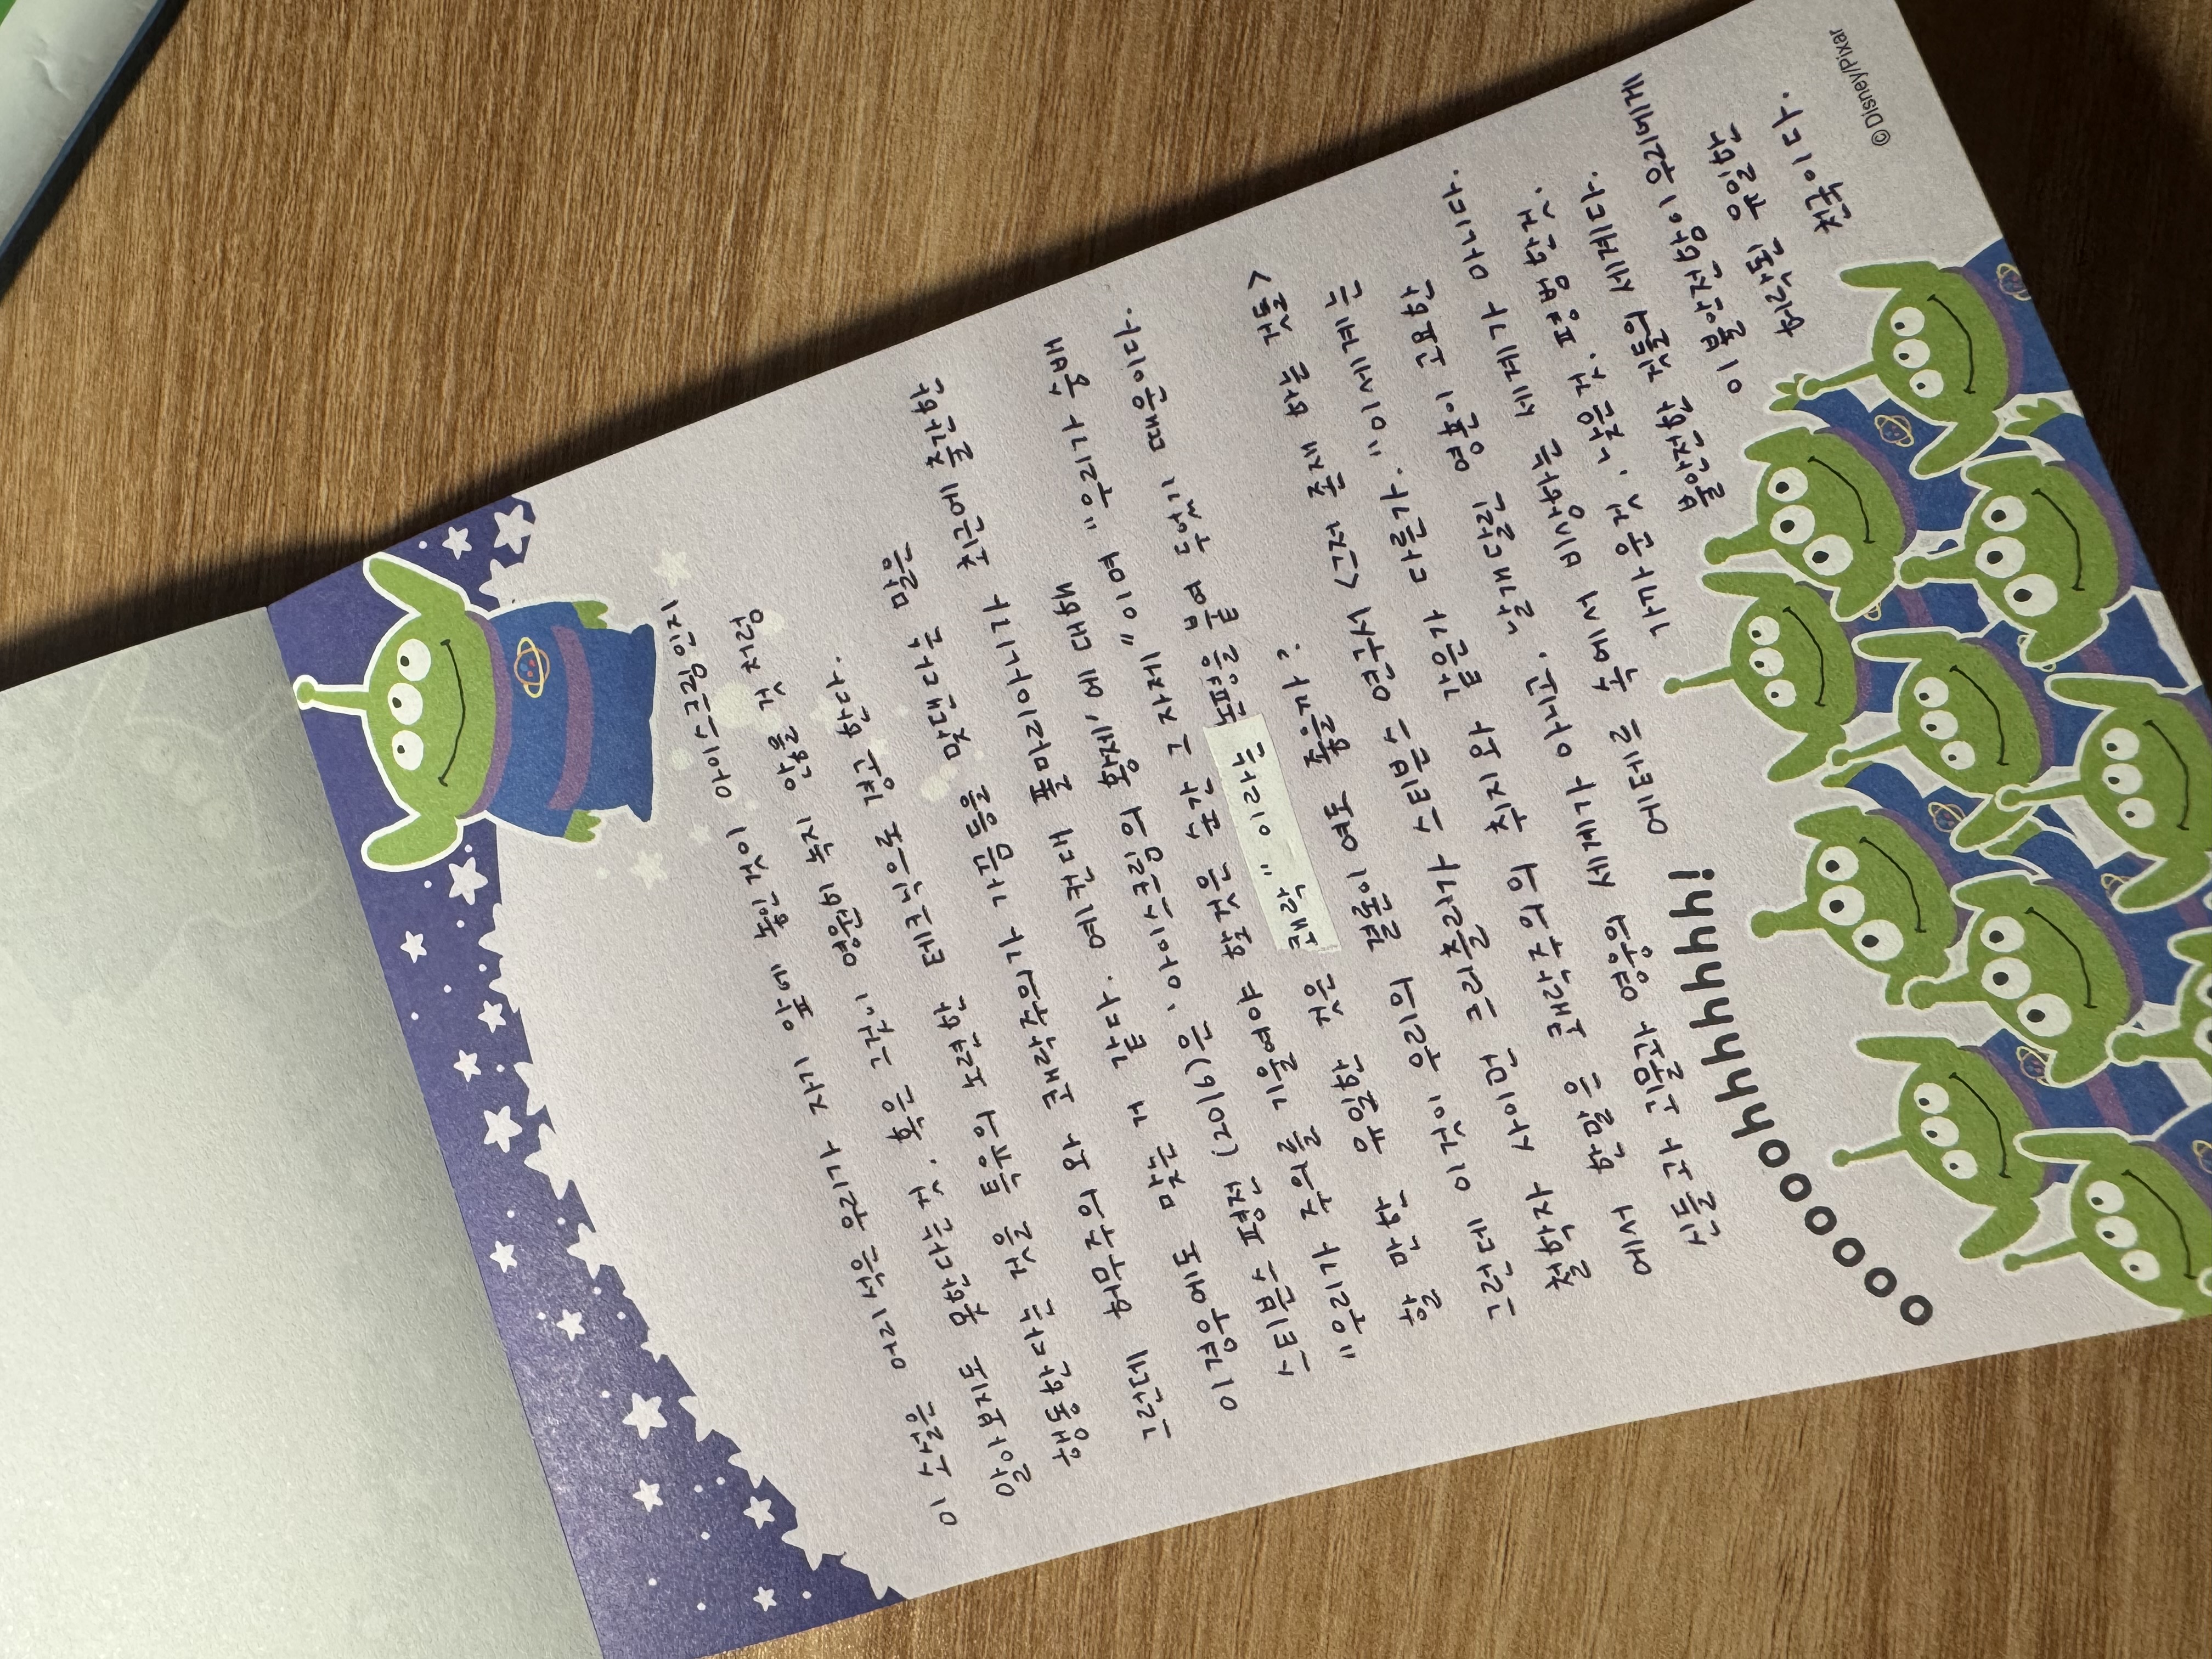 이 소설은 어리석은 우리가 자기 앞에 놓인것이 아이스크림인지
알아보지도 못한다는것. 혹은 그것이 영원히 녹지 않을 것 처럼
행동한다는 것을 특유의 노련한 테크닉으로 경고 한다.
그런데 허무주의와 쾌락주의가 가끔 등을 맞댄다는 말은
이 경우에도 맞는 거 같다. 예컨대 폴마리아니가 최근에 출간한
스티븐스 평전 (2016)은 '아이스크림의 황제'에 대해
"우리가 주의를 기울여야 할것은 순간 그 자체" 이며 "우리가 숭배
할 만한 유일한 것은 쾌락" 이라는 논평을 붙여 두었기 때문이다.
그런데 이것이 우리의 결론이 여도 좋을까?
철학자 사이먼 크리츨리가 스티븐스 연구서 <그저 존재 하는 것들>
에서 한말은 쾌락주의의 취지와 같은가 다른가. "이 세계는
신들과 괴물과 영웅의 세계가 아니고. 날개달린 영혼이 고요한
에테르 속에서 비상하는 세계가 아니다.
가까운것, 낮은 것. 평범한 것.
불안전한 것들의 세계다.
이 불안전함이 우리에게
허락된 유일한
천국이다.
ooooooohhhhhhhh!
© Disney/Pixar